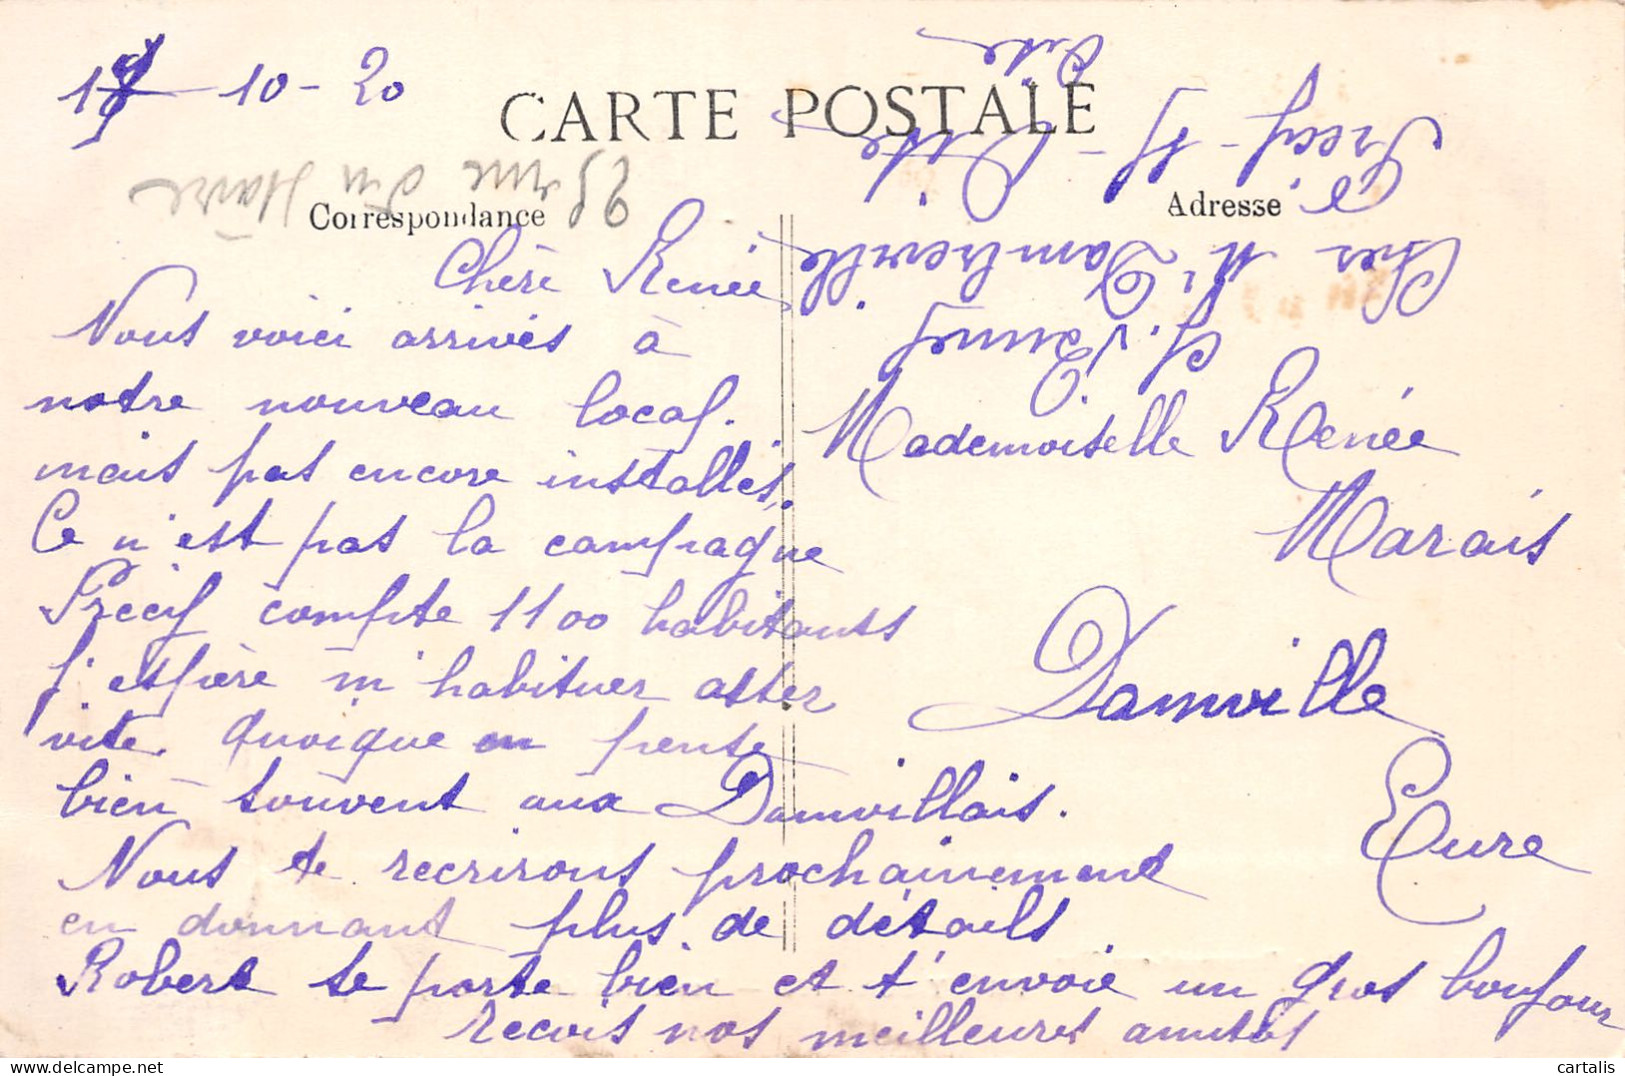 10-20
CARTE POSTALE
Correspondance
Adresse
Chère Renée
Nous voici arrivés à
notre nouveau local.
mais pas encore installés.
Ce n'est pas la campagne
Précy compte 1100 habitants
J'espère m'habituer assez
vite. quoique on pense
bien souvent aux Damvillais.
Nous te recrirons prochainement
en donnant plus de détails
Robert se porte bien et t'envoie un gros bonjour
recois nos meilleures amities
Mademoiselle Renée
Marais
Damville
Eure
Chez Mr Dambreville
à Précy-s/-Oise
Oise
25 rue du Havre
cartalis